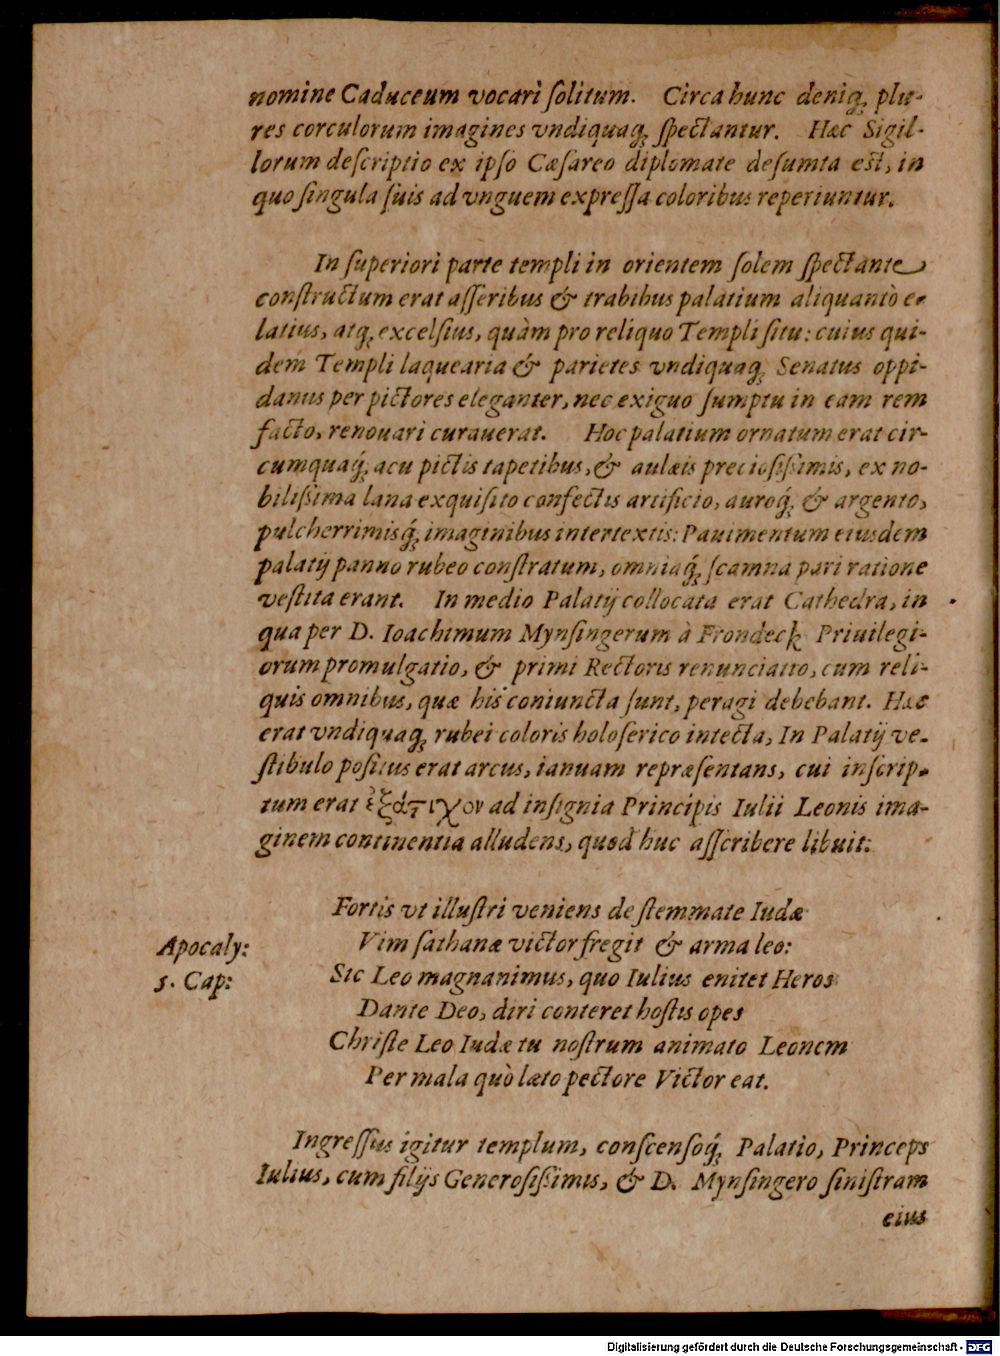 nomine Caduceum vocari ſolitum. Circa hunc deniq́; plu-
res corculorum imagines vndiquaq́; ſpectantur. Hæc Sigil-
lorum deſcriptio ex ipſo Cæſareo diplomate deſumta eſt, in
quo ſingula ſuis ad vnguem expreſſa coloribus reperiuntur.
In ſuperiori parte templi in orientem ſolem ſpectante
conſtructum erat aſſeribus & trabibus palatium aliquantò e-
latius, atq́; excelſius, quàm pro reliquo Templi ſitu: cuius qui-
dem Templi laquearia & parietes vndiquaq́; Senatus oppi-
danus per pictores eleganter, nec exiguo ſumptu in eam rem
facto, renouari curauerat. Hoc palatium ornatum erat cir-
cumquaq́; acu pictis tapetibus, & aulæis precioſiſsimis, ex no-
biliſsima lana exquiſito confectis artificio, auroq́; & argento,
pulcherrimisq́; imaginibus intertextis: Pauimentum eiusdem
palatij panno rubeo conſtratum, omniaq́; ſcamna pari ratione
veſtita erant. In medio Palatij collocata erat Cathedra, in
qua per D. Ioachimum Mynſingerum à Frondeck Priuilegi-
orum promulgatio, & primi Rectoris renunciatio, cum reli-
quis omnibus, quæ his coniuncta ſunt, peragi debebant. Hæc
erat vndiquaq́; rubei coloris holoſerico intecta, In Palatij ve-
ſtibulo poſitus erat arcus, ianuam repræſentans, cui inſcrip-
tum erat ἑξάστιχον ad inſignia Principis Iulii Leonis ima-
ginem continentia alludens, quod huc aſſcribere libuit:
Fortis vt illuſtri veniens de ſtemmate Iudæ
Apocaly: Vim ſathanæ victor fregit & arma leo:
5. Cap: Sic Leo magnanimus, quo Iulius enitet Heros
Dante Deo, diri conteret hoſtis opes
Chriſte Leo Iudæ tu noſtrum animato Leonem
Per mala quò læto pectore Victor eat.
Ingreſſus igitur templum, conſcenſoq́; Palatio, Princeps
Iulius, cum filijs Generoſiſsimis, & D. Mynſingero ſiniſtram
eius
Digitalisierung gefördert durch die Deutsche Forschungsgemeinschaft - DFG